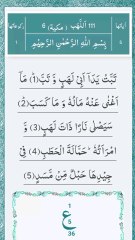 111 اَللَّهَب ( مكية ) 6
بِسْمِ اللّٰهِ الرَّحْمٰنِ الرَّحِيْمِ
تَبَّتْ يَدَاۤ اَبِیْ لَهَبٍ وَّ تَبَّ(1) مَاۤ
اَغْنٰى عَنْهُ مَالُهٗ وَ مَا كَسَبَ(2)
سَیَصْلٰى نَارًا ذَاتَ لَهَبٍ(3) وَّ
امْرَاَتُهٗؕ حَمَّالَةَ الْحَطَبِ(4) فِیْ
جِیْدِهَا حَبْلٌ مِّنْ مَّسَدٍ(5)
1
ع
5
36